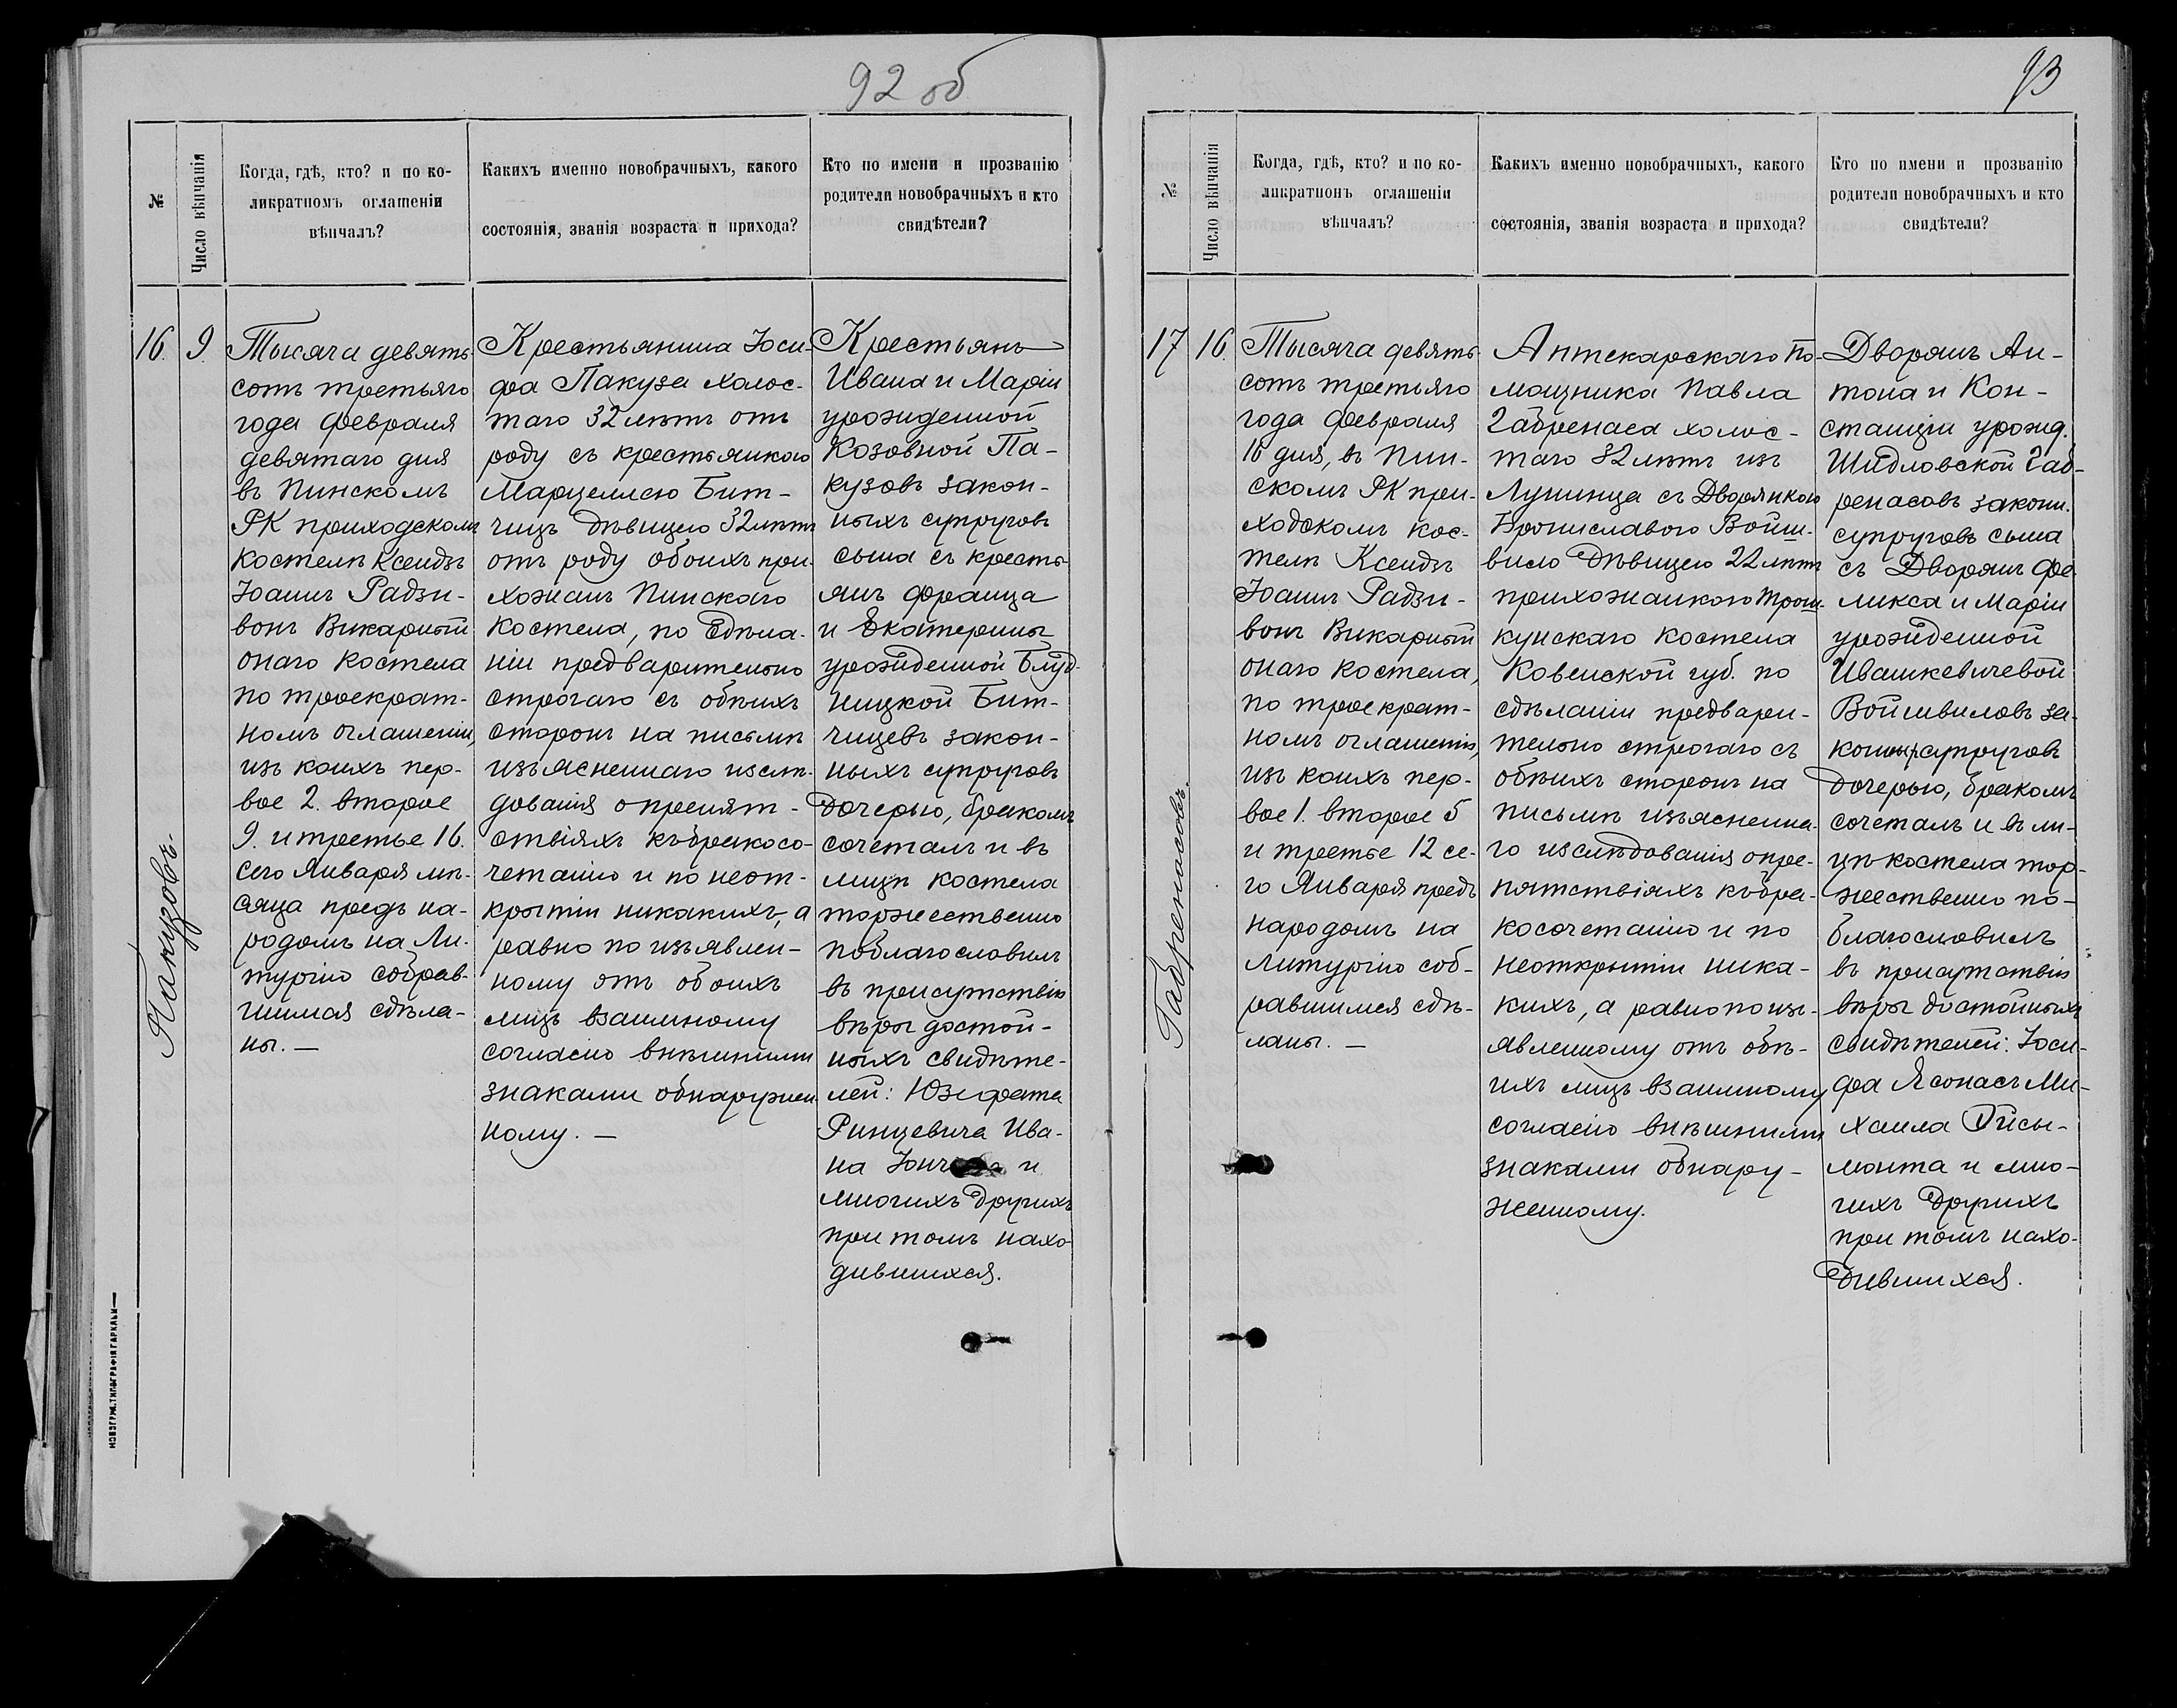 92 об
№
Число вѣнчанія
Когда, гдѣ, кто? и по ко-
ликратномъ оглашеніи
вѣнчалъ?
Какихъ именно новобрачныхъ, какого
состоянія, званія возраста и прихода?
Кто по имени и прозванію
родители новобрачныхъ и кто
свидѣтели?
16.
9.
Пакузовъ.
Тысяча девять-
сотъ третьяго
года февраля
девятаго дня
въ Пинскомъ
РК приходскомъ
костелѣ Ксендзъ
Іоаннъ Радзи-
вонъ Викарный
онаго костела
по троекрат-
номъ оглашеніи,
изъ коихъ пер-
вое 2. второе
9. и третье 16.
сего Января мѣ-
сяца предъ на-
родомъ на Ли-
тургію собрав-
шимся сдѣла-
ны. —
Крестьянина Іоси-
фа Пакуза холос-
таго 32 лѣтъ отъ
роду съ крестьянкою
Марцеллею Бит-
чицъ Дѣвицею 32 лѣтъ
отъ роду обоихъ при-
хожанъ Пинскаго
костела, по сдѣла-
ніи предварительно
строгаго съ обѣихъ
сторонъ на письмѣ
изъясненнаго изслѣ-
дованія о препят-
ствіяхъ къ бракосо-
четанію и по неот-
крытіи никакихъ, а
равно по изъявлен-
ному отъ обоихъ
лицъ взаимному
согласію внѣшними
знаками обнаружен-
ному. —
Крестьянъ
Ивана и Маріи
урожденной
Козовной Па-
кузовъ закон-
ныхъ супруговъ
сына съ кресть-
янъ Франца
и Екатерины
урожденной Блуд-
ницкой Бит-
чицевъ закон-
ныхъ супруговъ
Дочерью, бракомъ
сочеталъ и въ
лицѣ костела
торжественно
поблагословилъ
въ присутствіи
вѣры достой-
ныхъ свидѣте-
лей: Юзефата
Ринцевича Ива-
на и
многихъ Другихъ
при томъ нахо-
дившихся.
НОВОГРУД. ТИПОГРАФІЯ ГАРКАВИ
93
№
Число вѣнчанія
Когда, гдѣ, кто? и по ко-
ликратномъ оглашеніи
вѣнчалъ?
Какихъ именно новобрачныхъ, какого
состоянія, званія возраста и прихода?
Кто по имени и прозванію
родители новобрачныхъ и кто
свидѣтели?
17
16.
Габренасовъ.
Тысяча девять-
сотъ третьяго
года февраля
16 дня, въ Пин-
скомъ РК при-
ходскомъ кос-
телѣ Ксендзъ
Іоаннъ Радзи-
вонъ Викарный
онаго костела,
по троекрат-
номъ оглашеніи,
изъ коихъ пер-
вое 1. второе 5
и третье 12 се-
го Января предъ
народомъ на
Литургію соб-
равшимся сдѣ-
ланы. —
Аптекарскаго По-
мощника Павла
Габренаса холос-
таго 32 лѣтъ изъ
Лунинца съ Дворянкою
Брониславою Войш-
вило Дѣвицею 22 лѣтъ
прихожанкою Трош-
кунскаго костела
Ковенской губ. по
сдѣланіи предвари-
тельно строгаго съ
обѣихъ сторонъ на
письмѣ изъясненна-
го изслѣдованія о пре-
пятствіяхъ къ бра-
косочетанію и по
неоткрытіи ника-
кихъ, а равно по изъ-
явленному отъ обѣ-
ихъ лицъ взаимному
согласію внѣшними
знаками обнару-
женному.
Дворянъ Ан-
тона и Кон-
станціи урожд.
Шидловской Габ-
ренасовъ законн.
супруговъ сына
съ Дворянъ Фе-
ликса и Маріи
урожденной
Ивашкевичевой
Войшвиловъ за-
конныхъ супруговъ
Дочерью, бракомъ
сочеталъ и въ ли-
цѣ костела тор-
жественно по-
благословилъ
въ присутствіи
вѣры достойныхъ
свидѣтелей: Іоси-
фа Ясонасъ Ми-
хаила Гйсы-
монта и мно-
гихъ Другихъ
при томъ нахо-
дившихся.